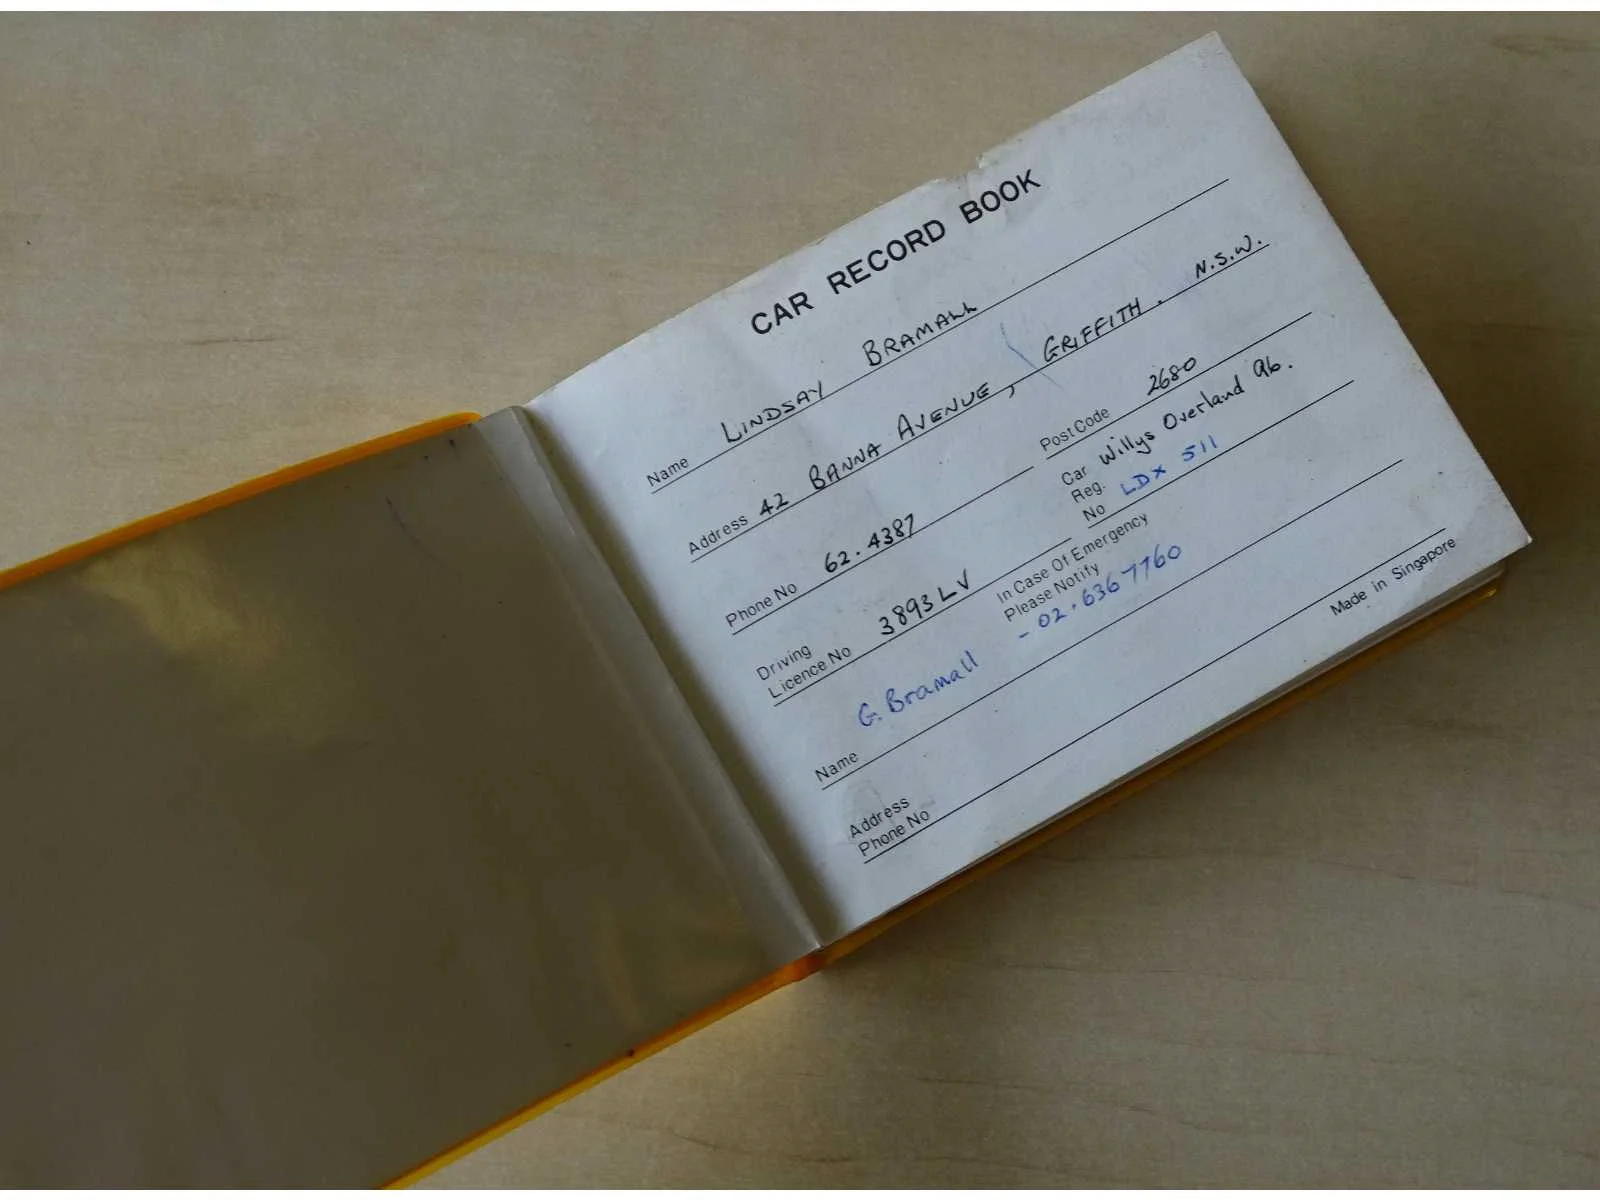 CAR RECORD BOOK
Name LINDSAY BRAMALL
Address 42 BANNA AVENUE, GRIFFITH. N.S.W.
Phone No 62.4387
Post Code 2680
Driving
Licence No 3893 LV
Car Willys Overland 96.
Reg.
No LDX 511
In Case Of Emergency
Please Notify
Name G. Bramall - 02.636 7760
Address
Phone No
Made in Singapore